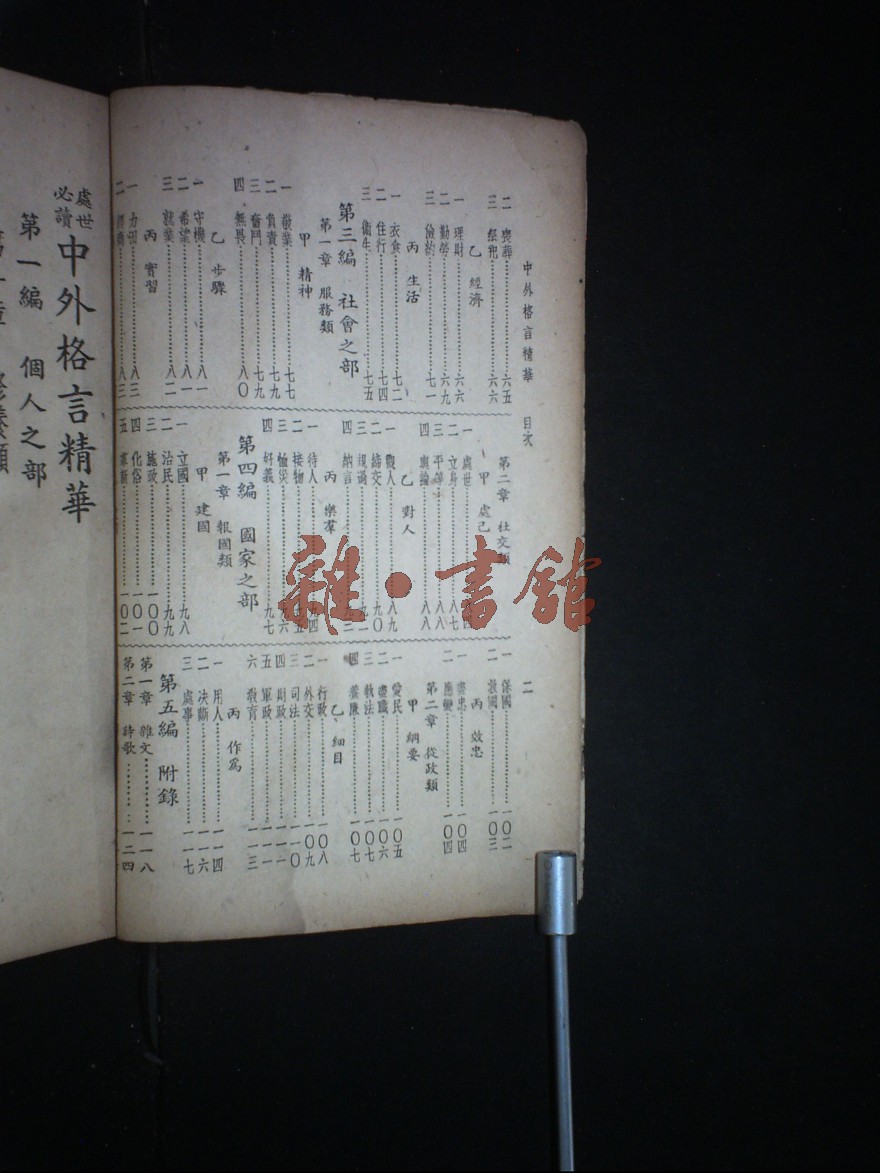 中外格言精華　目次
二　喪葬…六五
三　祭祀…六六
乙　經濟
一　理財…六六
二　勤勞…六九
三　儉約…七一
丙　生活
一　衣食…七二
二　住行…七四
三　衛生…七五
第三編　社會之部
第一章　服務類
甲　精神
一　敬業…七七
二　負責…七九
三　奮鬥…七九
四　無畏…八〇
乙　步驟
一　守機…八一
二　希望…八一
三　就業…八二
丙　實習
一　力
二
第二章　社交類
甲　處己
一　處世
二　立身…八七
三　平等…八八
四　輿論…八八
乙　對人
一　觀人…八九
二　締交…九〇
三　規過…九二
四　納言…九三
丙　樂羣
一　待人…九四
二　接物…九五
三　恤災…九六
四　好義…九七
第四編　國家之部
第一章　報國類
甲　建國
一　立國…九八
二　治民…九九
三　施政…一〇〇
四　化俗…一〇一
五　革新…一〇二
二
一　保國…一〇二
二　救國…一〇三
丙　效忠
一　盡忠…一〇四
二　應變…一〇四
第二章　從政類
甲　綱要
一　愛民…一〇五
二　盡職…一〇六
三　執法…一〇七
四　養廉…一〇七
乙　細目
一　行政…一〇八
二　外交…一〇九
三　司法…一一〇
四　財政…一一一
五　軍政…一一一
六　教育…一一三
丙　作為
一　用人…一一四
二　決斷…一一六
三　處事…一一七
第五編　附錄
第一章　雜文…一一八
第二章　詩歌…一二四
處世必讀　中外格言精華
第一編　個人之部
雜·書館